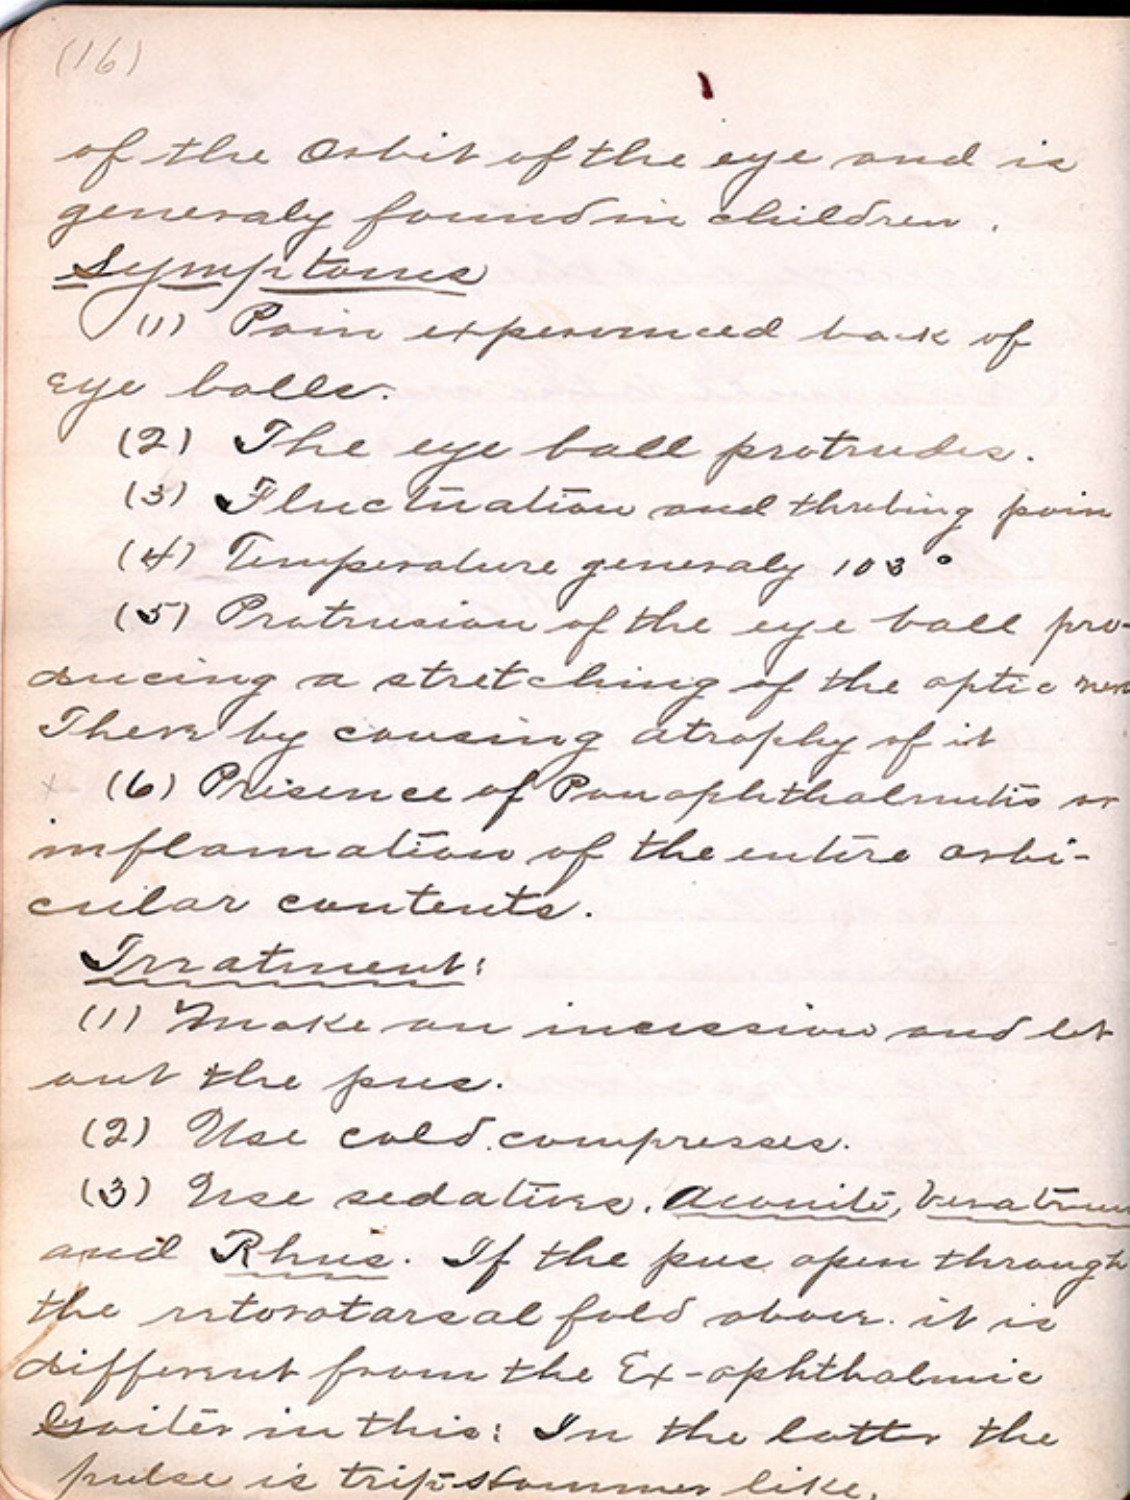 (16)
of the Orbit of the eye and is
generaly found in children.
Symptoms
(1) Pain experienced back of
eye balls.
(2) The eye ball protrudes.
(3) Fluctuation and throbing pain
(4) Temperature generaly 103°
(5) Protrusion of the eye ball pro-
ducing a stretching of the optic
There by causing atrophy of it
(6) Prisence of Panophthalmitis or
inflamation of the entire orbi-
cular contents.
Treatment:
(1) Make an incission and let
out the pus.
(2) Use cold compresses.
(3) Use sedatives. Aconite, Veratrum
and Rhus. If the pus open through
the retorotarsal fold above. it is
different from the Ex-ophthalmic
Goiter in this: In the latter the
pulse is trip-hammer like.